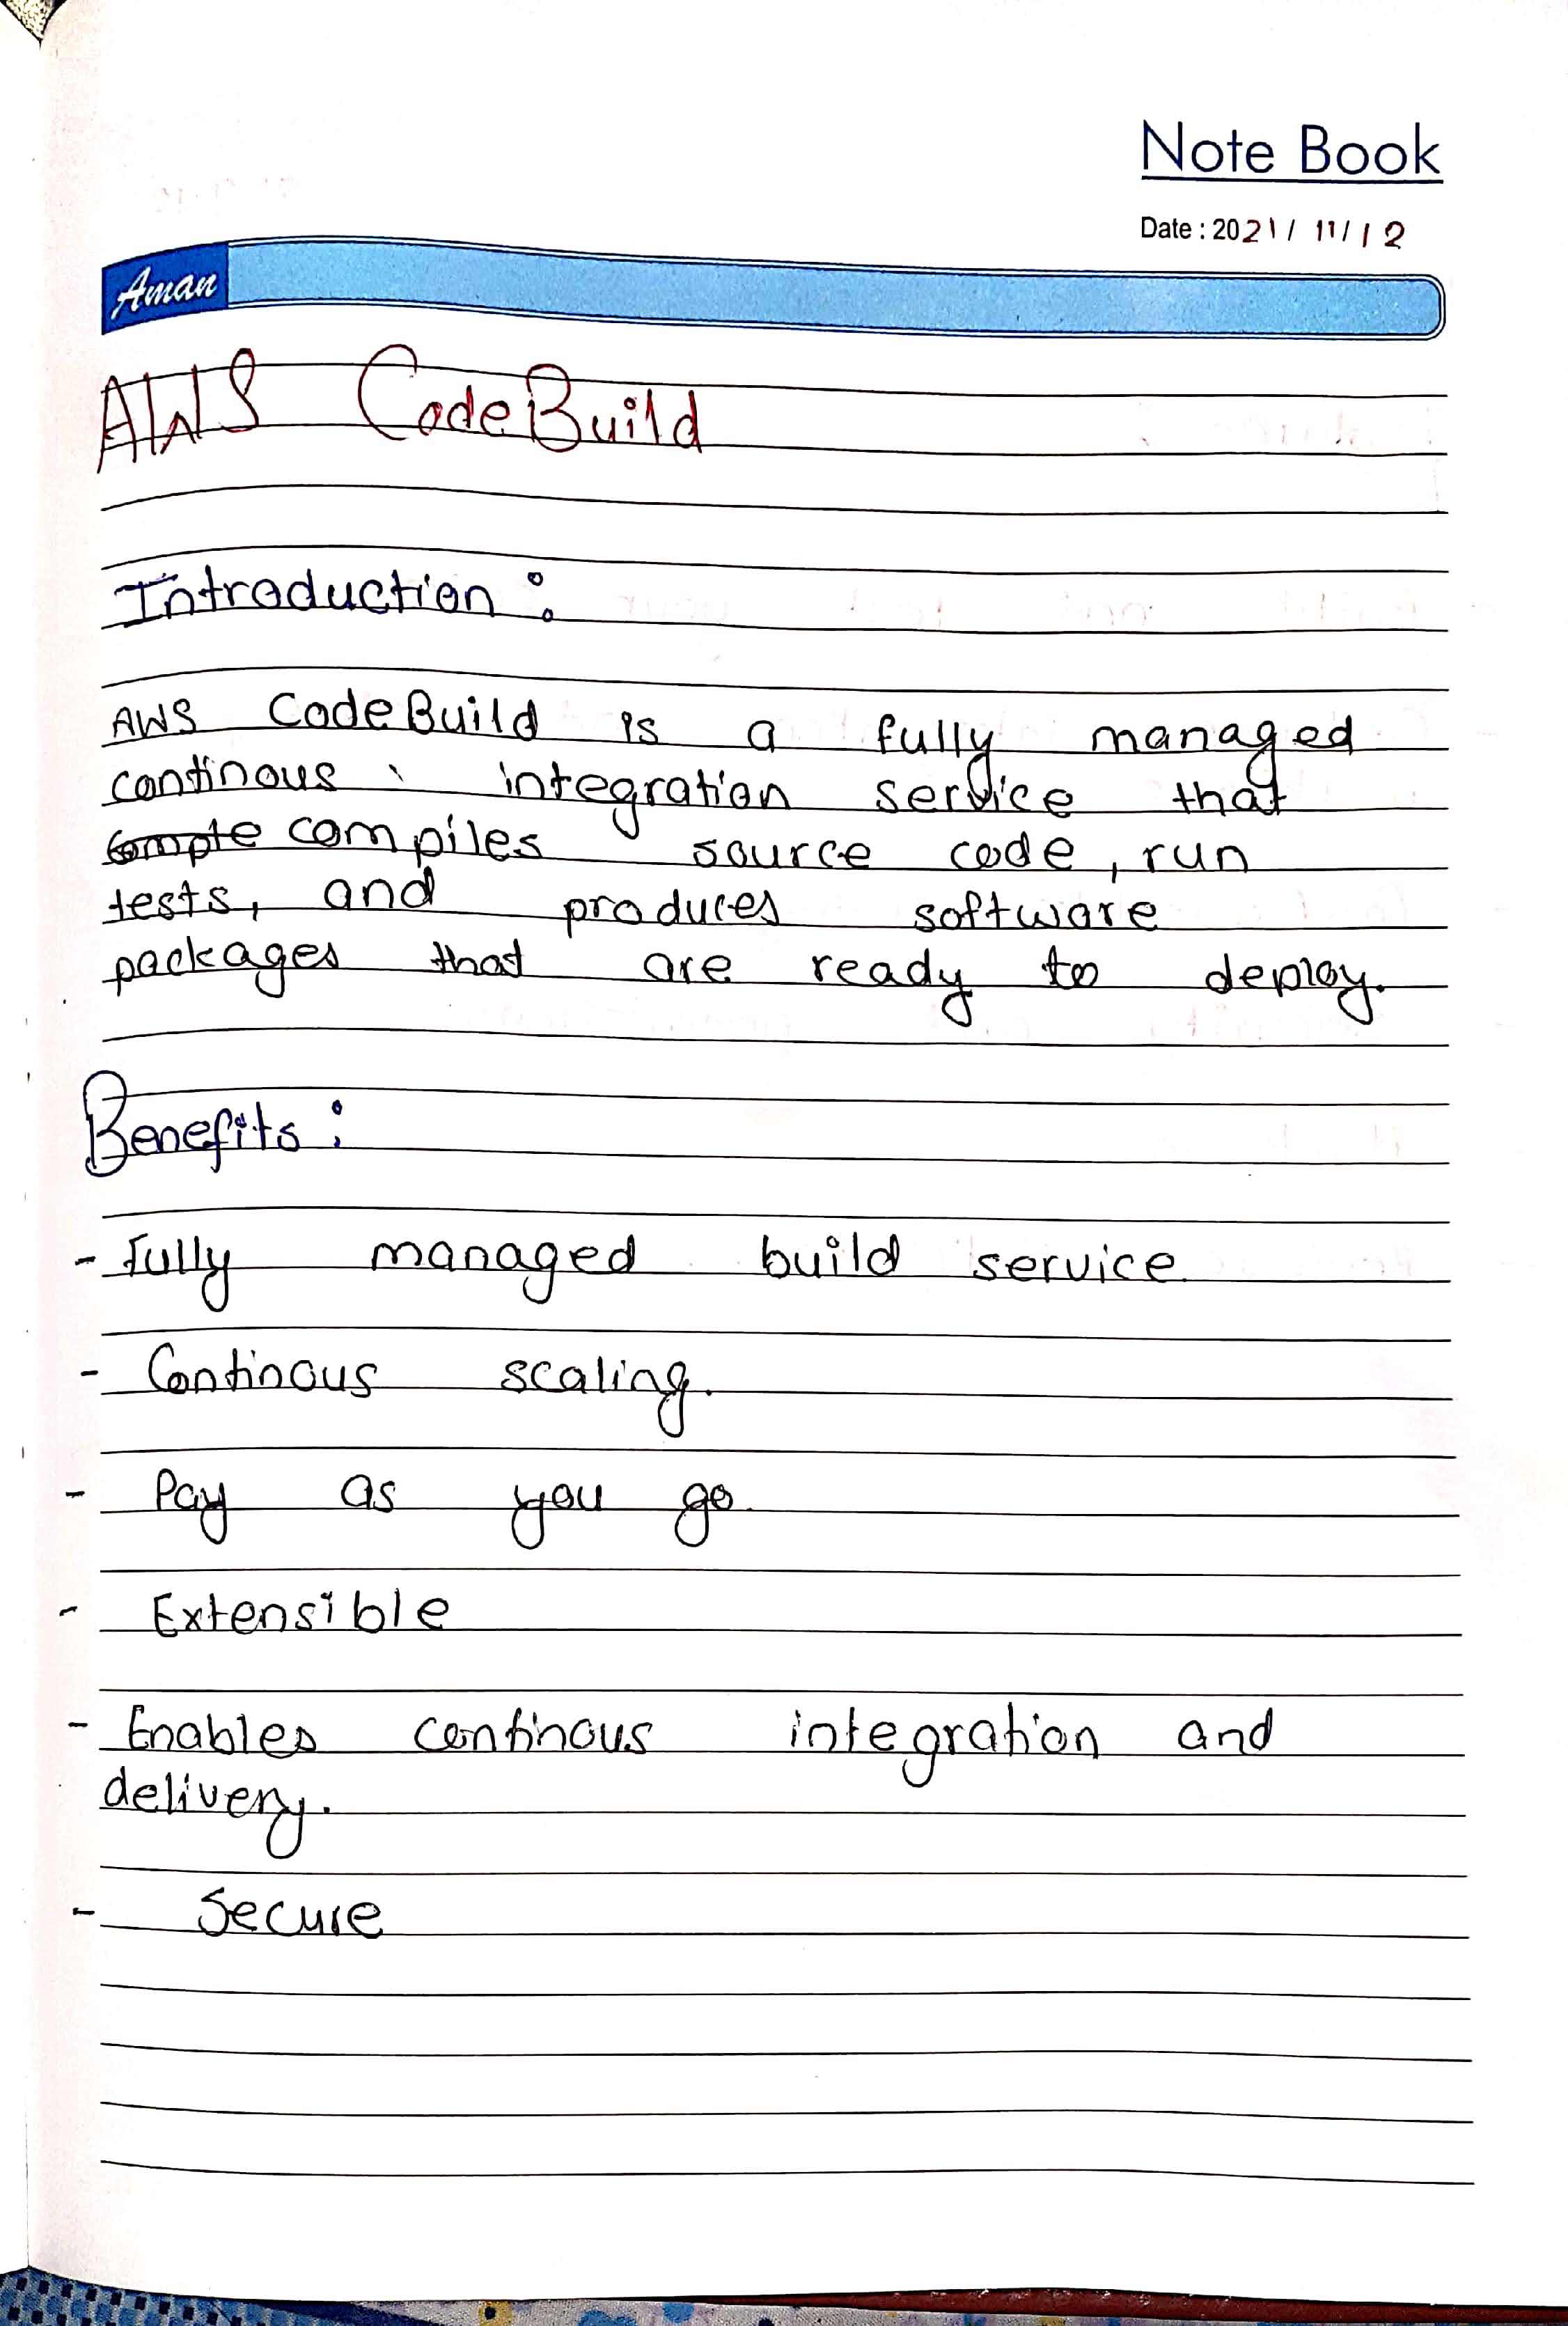 Note Book
Date : 2021 / 11 / 12
Aman
AWS CodeBuild
Introduction :
AWS CodeBuild is a fully managed
continous integration service that
compiles source code, run
tests, and produces software
packages that are ready to deploy.
Benefits :
- Fully managed build service
- Continous scaling.
- Pay as you go.
- Extensible
- Enables continous integration and
delivery.
- Secure